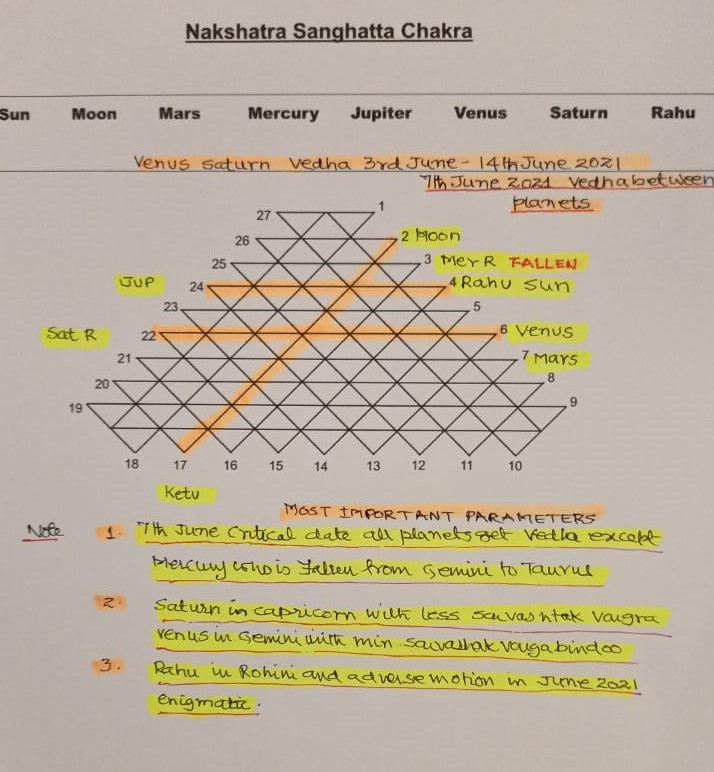 Nakshatra Sanghatta Chakra
Sun Moon Mars Mercury Jupiter Venus Saturn Rahu
Venus Saturn Vedha 3rd June - 14th June 2021
7th June 2021 Vedha between
planets
27 1
26 2 Moon
25 3 Mer R FALLEN
JUP 24 4 Rahu Sun
23 5
Sat R 22 6 Venus
21 7 Mars
20 8
19 9
18 17 16 15 14 13 12 11 10
Ketu
MOST IMPORTANT PARAMETERS
Note 1. 7th June Critical date all planets get Vedha except
Mercury who is fallen from Gemini to Taurus
2. Saturn in capricorn with less savashtak Vargra
Venus in Gemini with min. savashak varga bindoo
3. Rahu in Rohini and adverse motion in June 2021
enigmatic.